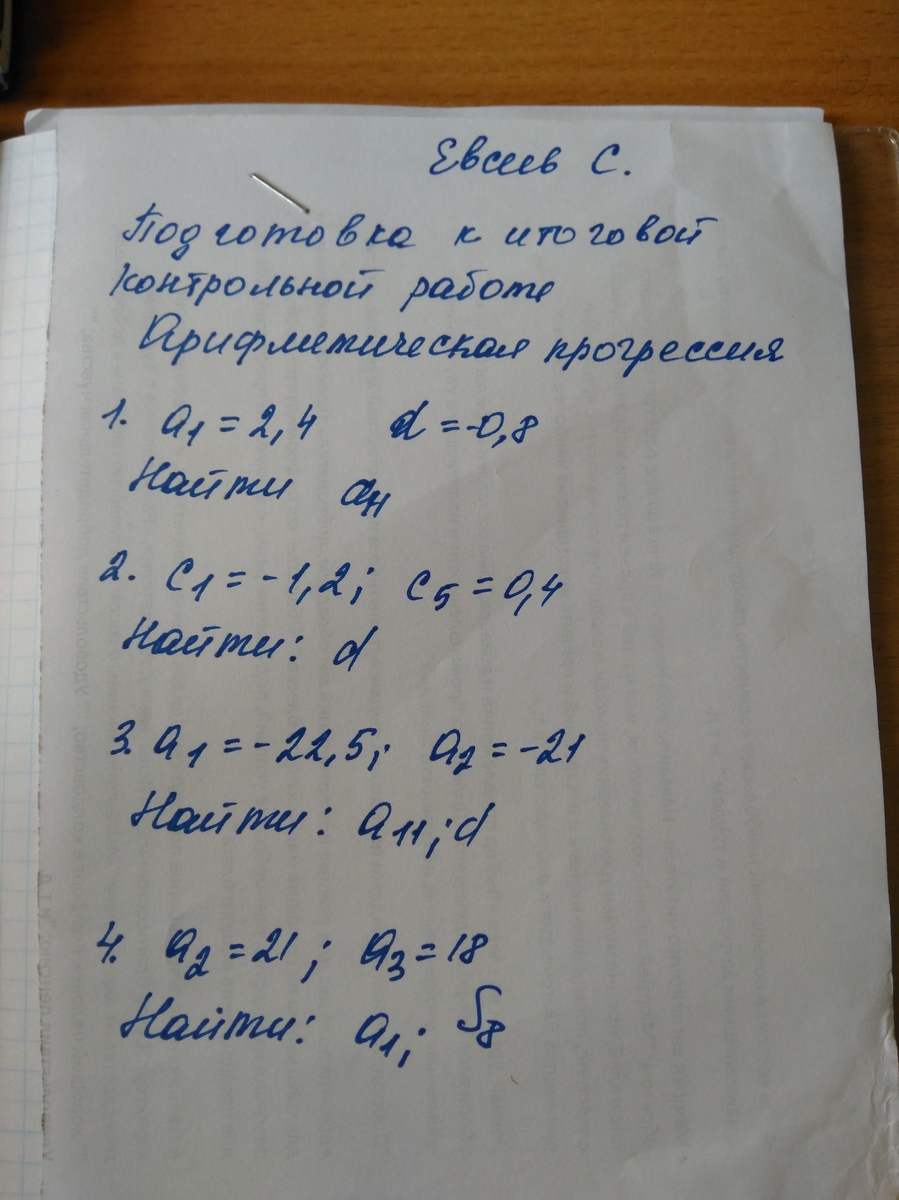 Евсеев С.
Подготовка к итоговой
контрольной работе
Арифметическая прогрессия
1. a₁ = 2,4 d = -0,8
Найти aн
2. c₁ = -1,2; c₅ = 0,4
Найти: d
3. a₁ = -22,5; a₂ = -21
Найти: a₁₁; d
4. a₂ = 21; a₃ = 18
Найти: a₁; S₈